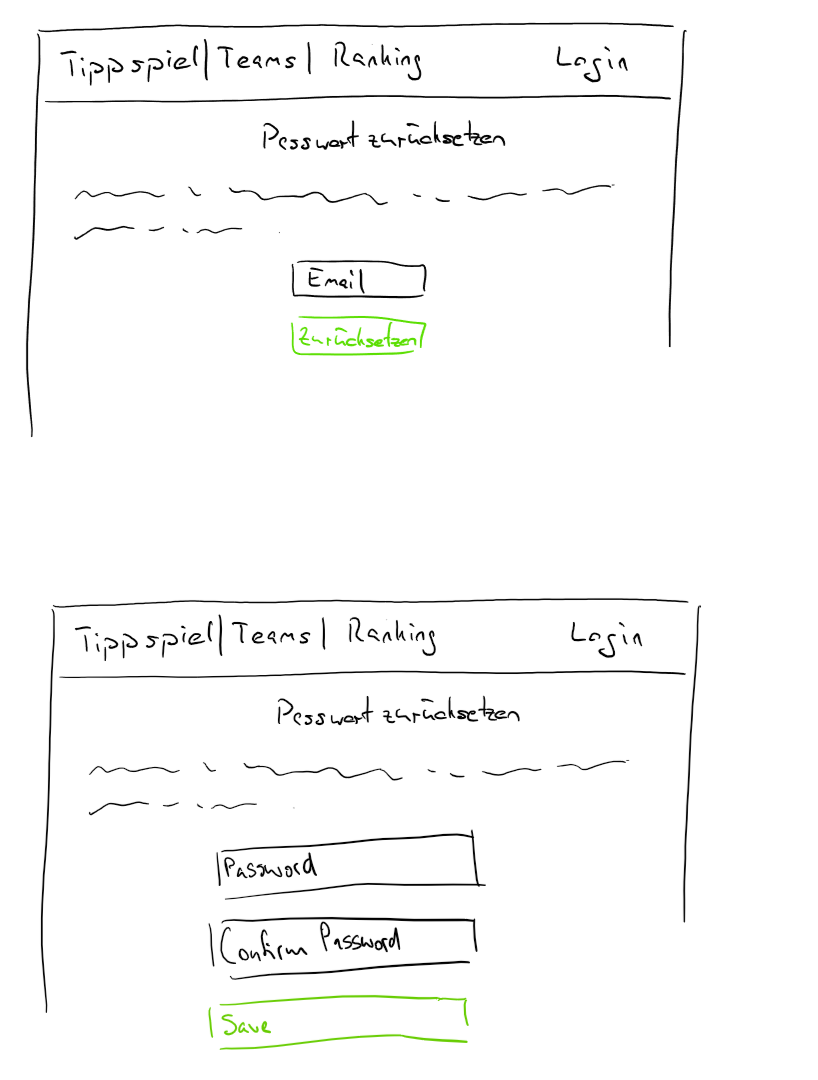 Tippspiel | Teams | Ranking Login
Passwort zurücksetzen
Email
Zurücksetzen
Tippspiel | Teams | Ranking Login
Passwort zurücksetzen
Password
Confirm Password
Save